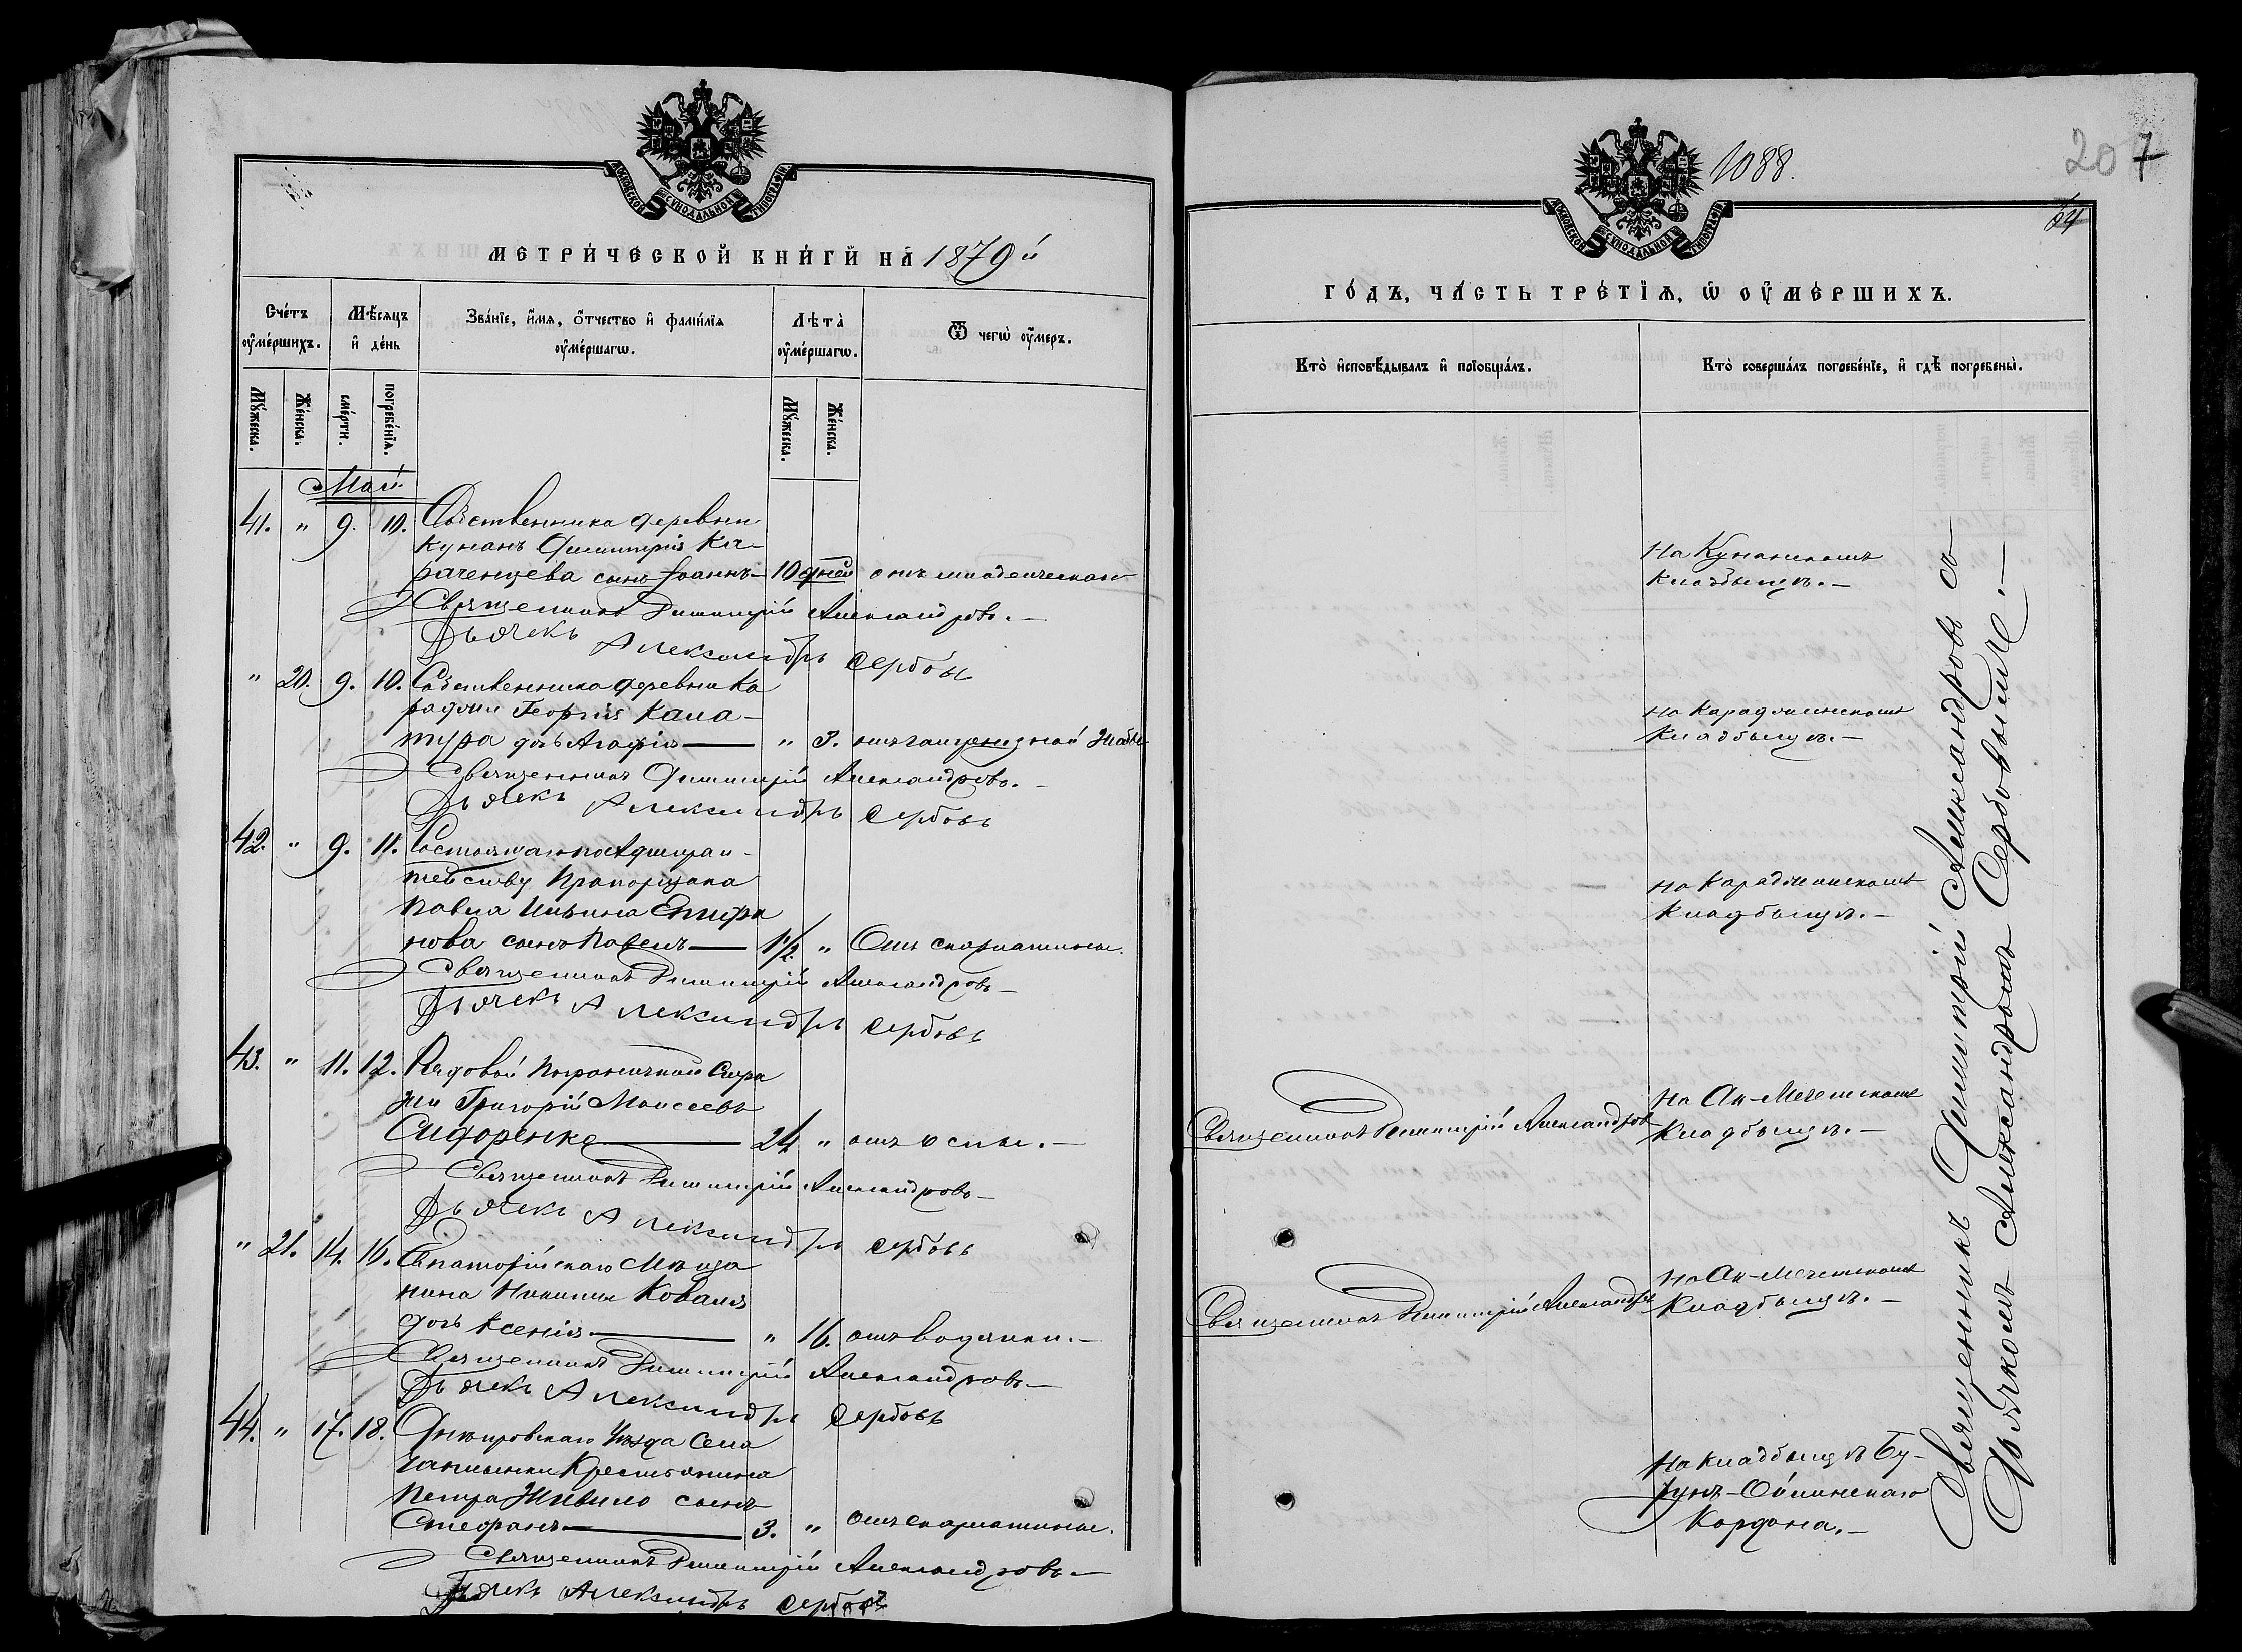 МОСКОВСКОЙ СѴНОДАЛЬНОЙ ТИПОГРАФІИ
МЕТРИ́ЧЕСКОЙ КНИ́ГИ НА 1879й
Сче́тъ ᲂу҆ме́ршихъ.
Мѣ́сѧцъ и҆ де́нь
Зва́нїе, и҆́мѧ, ѻ҆́тчество и҆ фами́лїѧ ᲂу҆ме́ршагѡ.
Лѣта̀ ᲂу҆ме́ршагѡ.
Ѿ чегѡ̀ ᲂу҆́меръ.
Мꙋ́жеска.
Же́нска.
сме́рти.
погребе́нїѧ.
Мꙋ́жеска.
Же́нска.
Май
41. " 9. 10. Собственника деревни
Кунанъ Димитрія Ка-
раченцева сынъ Іоаннъ — 10 дней отъ младенческаго
Священникъ Димитрій Александровъ. —
Дьячекъ Александръ Сербовъ
" 20. 9. 10. Собственника деревни Ка
раджи Георгія Кала-
тура дочь Агафія — " 3. отъ гангренозной жабы
Священникъ Димитрій Александровъ. —
Дьячекъ Александръ Сербовъ
42. " 9. 11. Состоящаго по Адмирал-
тейству Прапорщика
Павла Ильина Епифа
нова сынъ Павелъ — 1½ " Отъ скарлатины.
Священникъ Димитрій Александровъ —
Дьячекъ Александръ Сербовъ
43. " 11. 12. Рядовой Пограничной Стра
жи Григорій Моисеевъ
Сидоренко — 24 " отъ оспы. —
Священникъ Димитрій Александровъ —
Дьячекъ Александръ Сербовъ
" 21. 14. 16. Евпаторійскаго Мѣща
нина Никиты Коваля
дочь Ксенія — " 16. отъ водянки. —
Священникъ Димитрій Александровъ —
Дьячекъ Александръ Сербовъ
44. " 17. 18. Днѣпровскаго Уѣзда Села
Чаплынки Крестьянина
Петра Живило сынъ
Стефанъ — 3. " Отъ скарлатины.
Священникъ Димитрій Александровъ —
Дьячекъ Александръ Сербовъ
1088.
207
64
МОСКОВСКОЙ СѴНОДАЛЬНОЙ ТИПОГРАФІИ
ГО́ДЪ, ЧА́СТЬ ТРЕ́ТІѦ, Ѡ҆ ОУ҆МЕ́РШИХЪ.
Кто̀ и҆сповѣ́дывалъ и҆ прїѡбща́лъ.
Кто̀ соверша́лъ погребе́нїе, и҆ гдѣ̀ погребены̀.
На Кунанскомъ
Кладбыщѣ. —
На Караджинскомъ
Кладбыщѣ. —
На Караджинскомъ
Кладбыщѣ. —
Священникъ Димитрій Александровъ
На Ак-Мечетскомъ
Кладбыщѣ. —
Священникъ Димитрій Александровъ
На Ак-Мечетскомъ
Кладбыщѣ. —
На кладбыщѣ Бу-
Кордона. —
Священникъ Димитрій Александровъ съ
Дьячкомъ Александромъ Сербовымъ. —